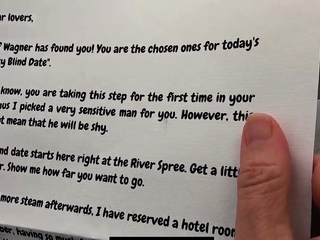 ar lovers,
? Wagner has found you! You are the chosen ones for today's
ty Blind Date".
know, you are taking this step for the first time in your
nus I picked a very sensitive man for you. However, this
t mean that he will be shy.
nd date starts here right at the River Spree. Get a litt
r. Show me how far you want to go.
more steam afterwards, I have reserved a hotel room
ber, having so much